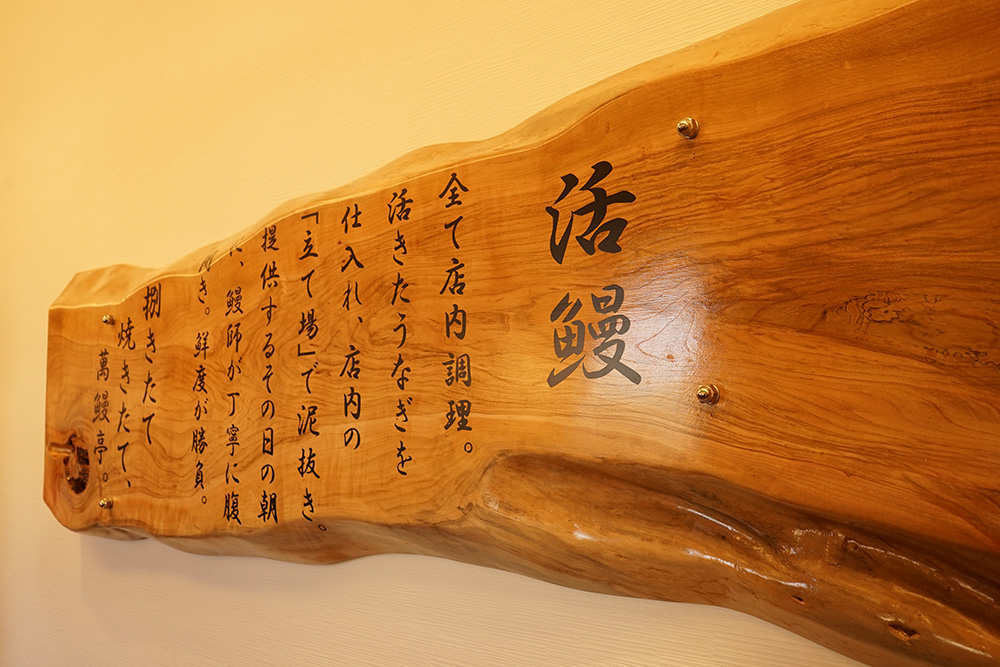 活鰻
全て店内調理。
活きたうなぎを
仕入れ、店内の
「立て場」で泥抜き。
提供するその日の朝
に、鰻師が丁寧に腹
開き。鮮度が勝負。
捌きたて
焼きたて、
萬鰻亭。